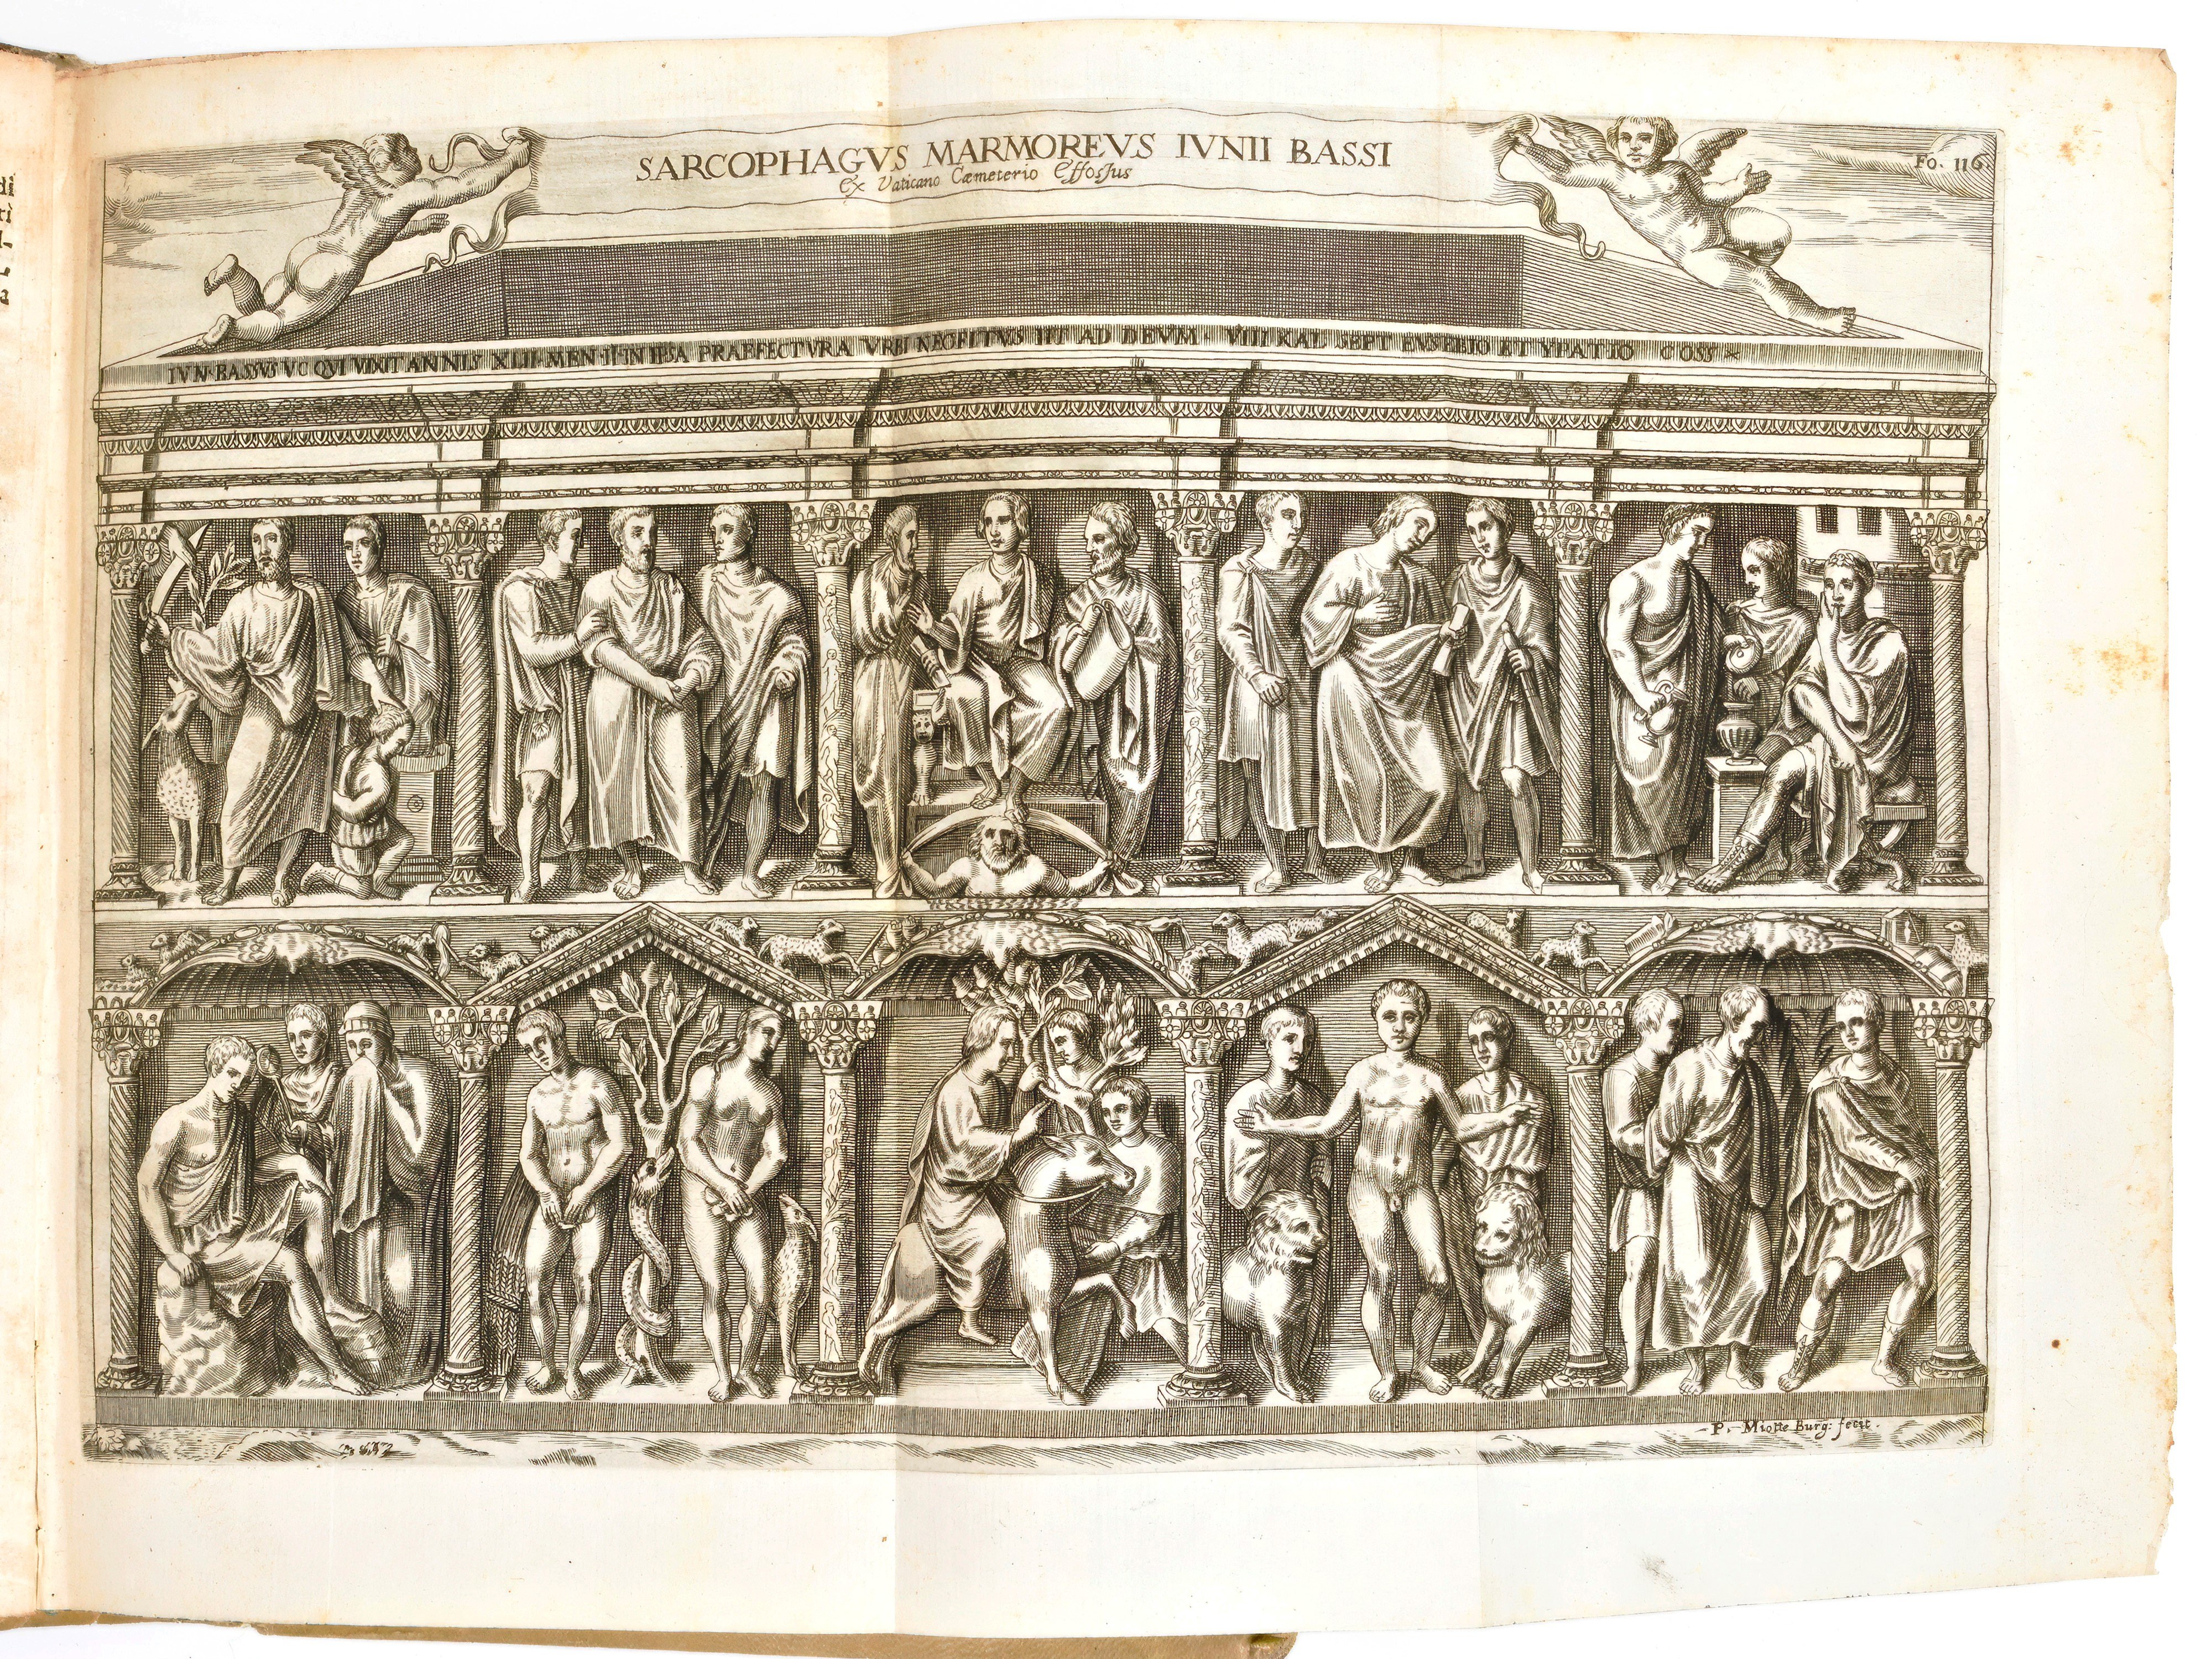 SARCOPHAGVS MARMOREVS IVNII BASSI
Ex Vaticano Cæmeterio Effossus
Fo. 116.
IVN·BASSVS VC QVI VIXIT ANNIS XLII·MEN·II·IN IPSA PRAEFECTVRA VRBI NEOFITVS IIT AD DEVM · VIII KAL SEPT EVSEBIO ET YPATIO COSS
P. Miotte Burg: fecit.
di
a